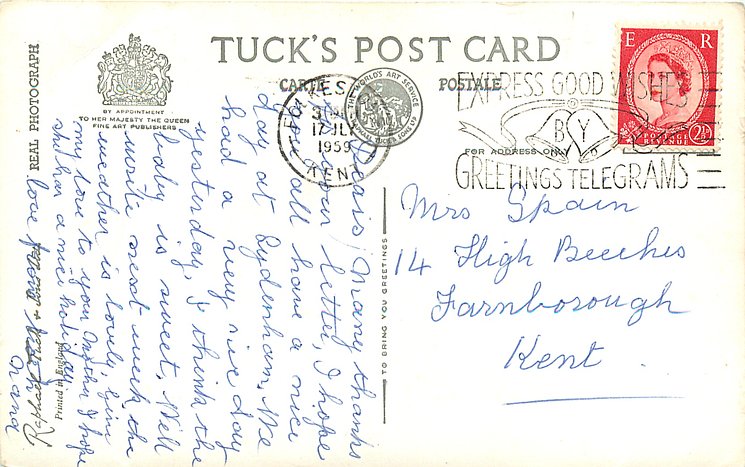 TUCK'S POST CARD
CARTE POSTALE
BY APPOINTMENT
TO HER MAJESTY THE QUEEN
FINE ART PUBLISHERS
REAL PHOTOGRAPH
THE WORLD'S ART SERVICE
17 JLY
1959
KENT
EXPRESS GOOD WISHES
BY
GREETINGS TELEGRAMS
FOR ADDRESS ONLY
E R
POSTAGE
REVENUE
2½
TO BRING YOU GREETINGS
Printed in England
Many thanks
for your letter, I hope
you all have a nice
day at Sydenham. We
had a very nice day
yesterday, I think the
baby is sweet. Will
write next week the
weather is lovely, give
my love to your Mother I hope
she has a nice holiday.
love from
Nana
Mrs Spain
14 High Beeches
Farnborough
Kent.